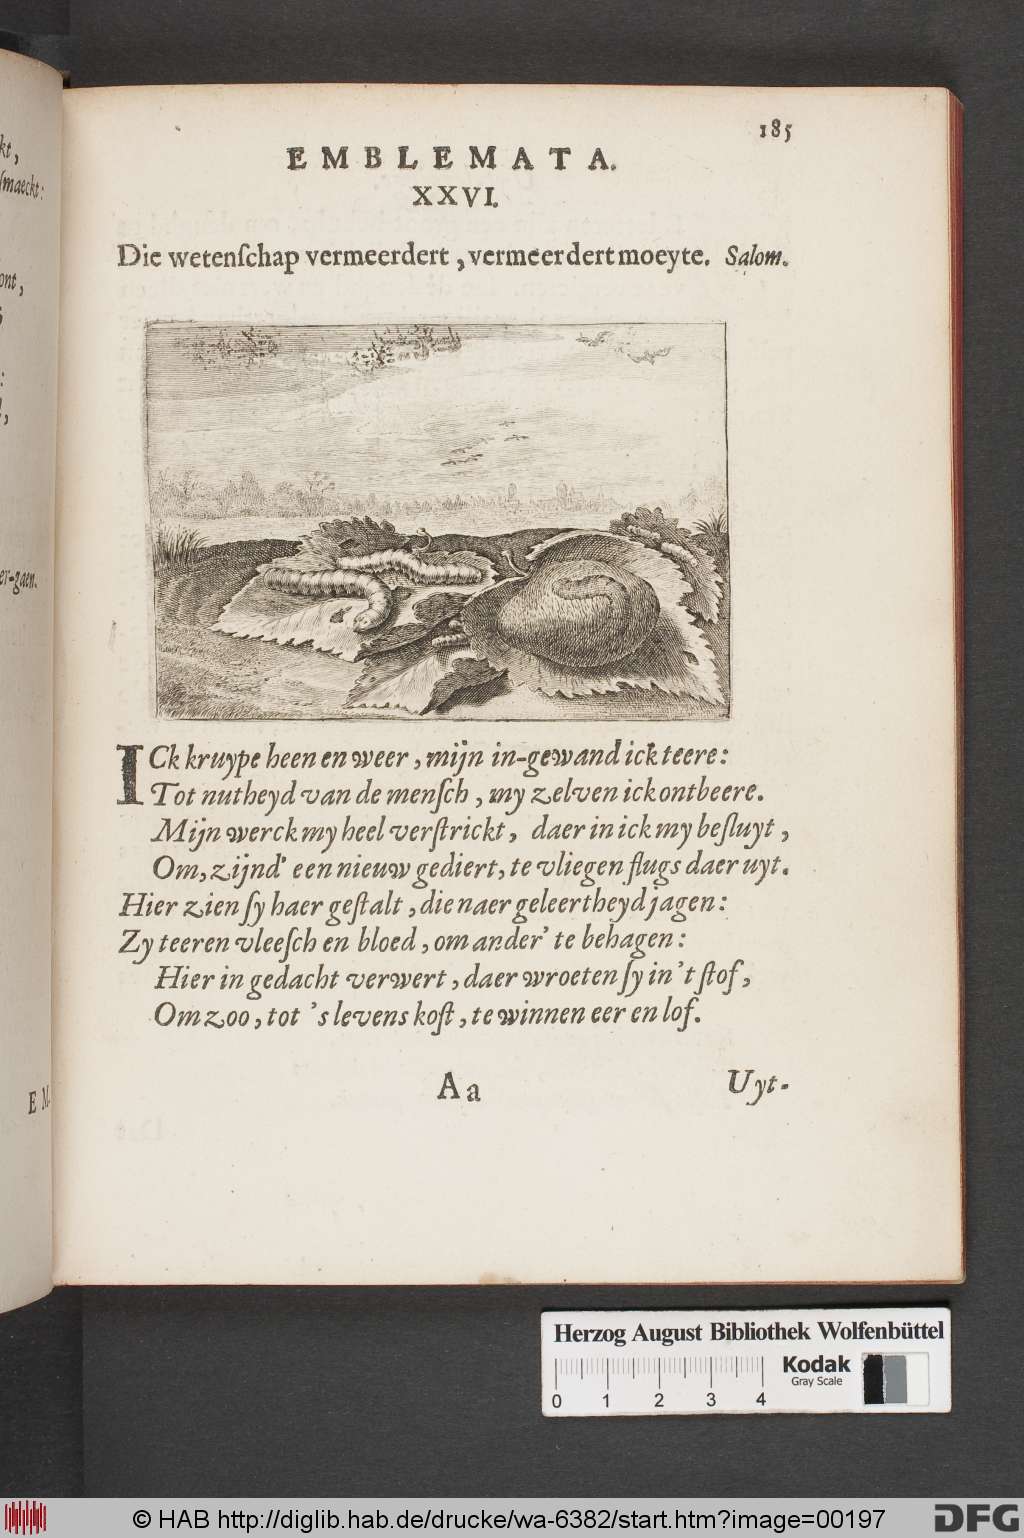 kt,
ſmaeckt:
ont,
:
,
er-gaen.
E M
185
EMBLEMATA.
XXVI.
Die wetenſchap vermeerdert, vermeerdert moeyte. Salom.
ICk kruype heen en weer, mijn in-gewand ick teere:
Tot nutheyd van de menſch, my zelven ick ontbeere.
Mijn werck my heel verſtrickt, daer in ick my beſluyt,
Om, zijnd' een nieuw gediert, te vliegen flugs daer uyt.
Hier zien ſy haer geſtalt, die naer geleertheyd jagen:
Zy teeren vleeſch en bloed, om ander' te behagen:
Hier in gedacht verwert, daer wroeten ſy in 't ſtof,
Om zoo, tot 's levens koſt, te winnen eer en lof.
Aa
Uyt-
Herzog August Bibliothek Wolfenbüttel
Kodak
Gray Scale
0 1 2 3 4
© HAB http://diglib.hab.de/drucke/wa-6382/start.htm?image=00197
DFG